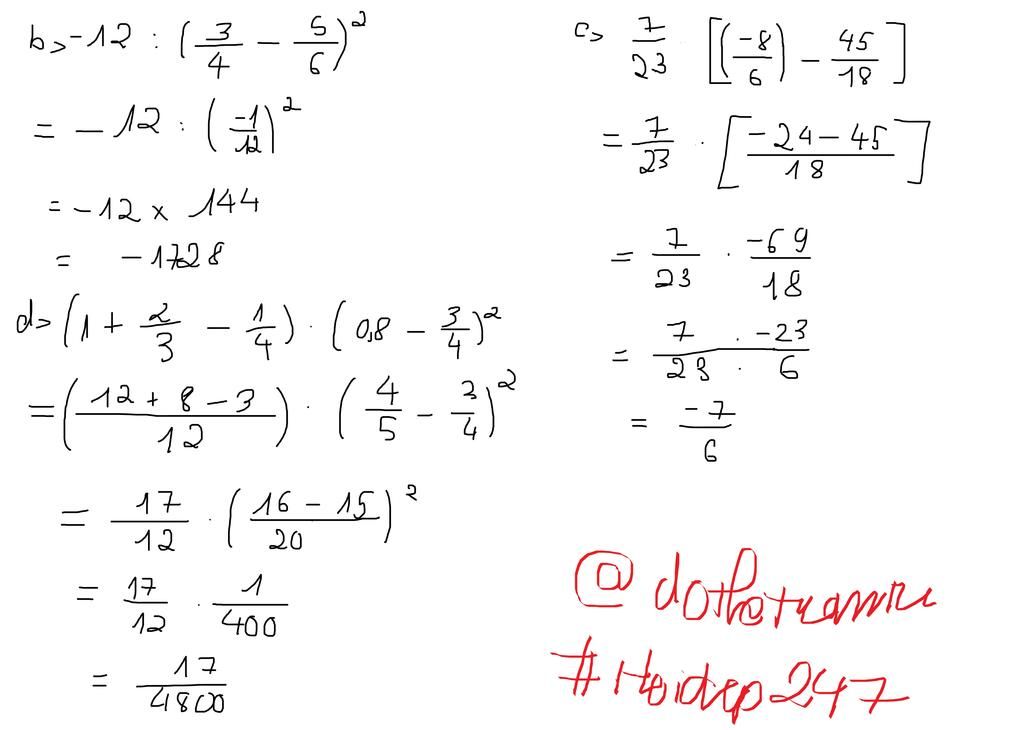 b> -12 : (3/4 - 5/6)²
= -12 : (-1/12)²
= -12 x 144
= -1728
d> (1 + 2/3 - 1/4) . (0,8 - 3/4)²
= ((12 + 8 - 3)/12) . (4/5 - 3/4)²
= 17/12 . ((16 - 15)/20)²
= 17/12 . 1/400
= 17/4800
c> 7/23 . [(-8/6) - 45/18]
= 7/23 . [(-24 - 45)/18]
= 7/23 . -69/18
= (7 . -23)/(23 . 6)
= -7/6
#Hoidap247